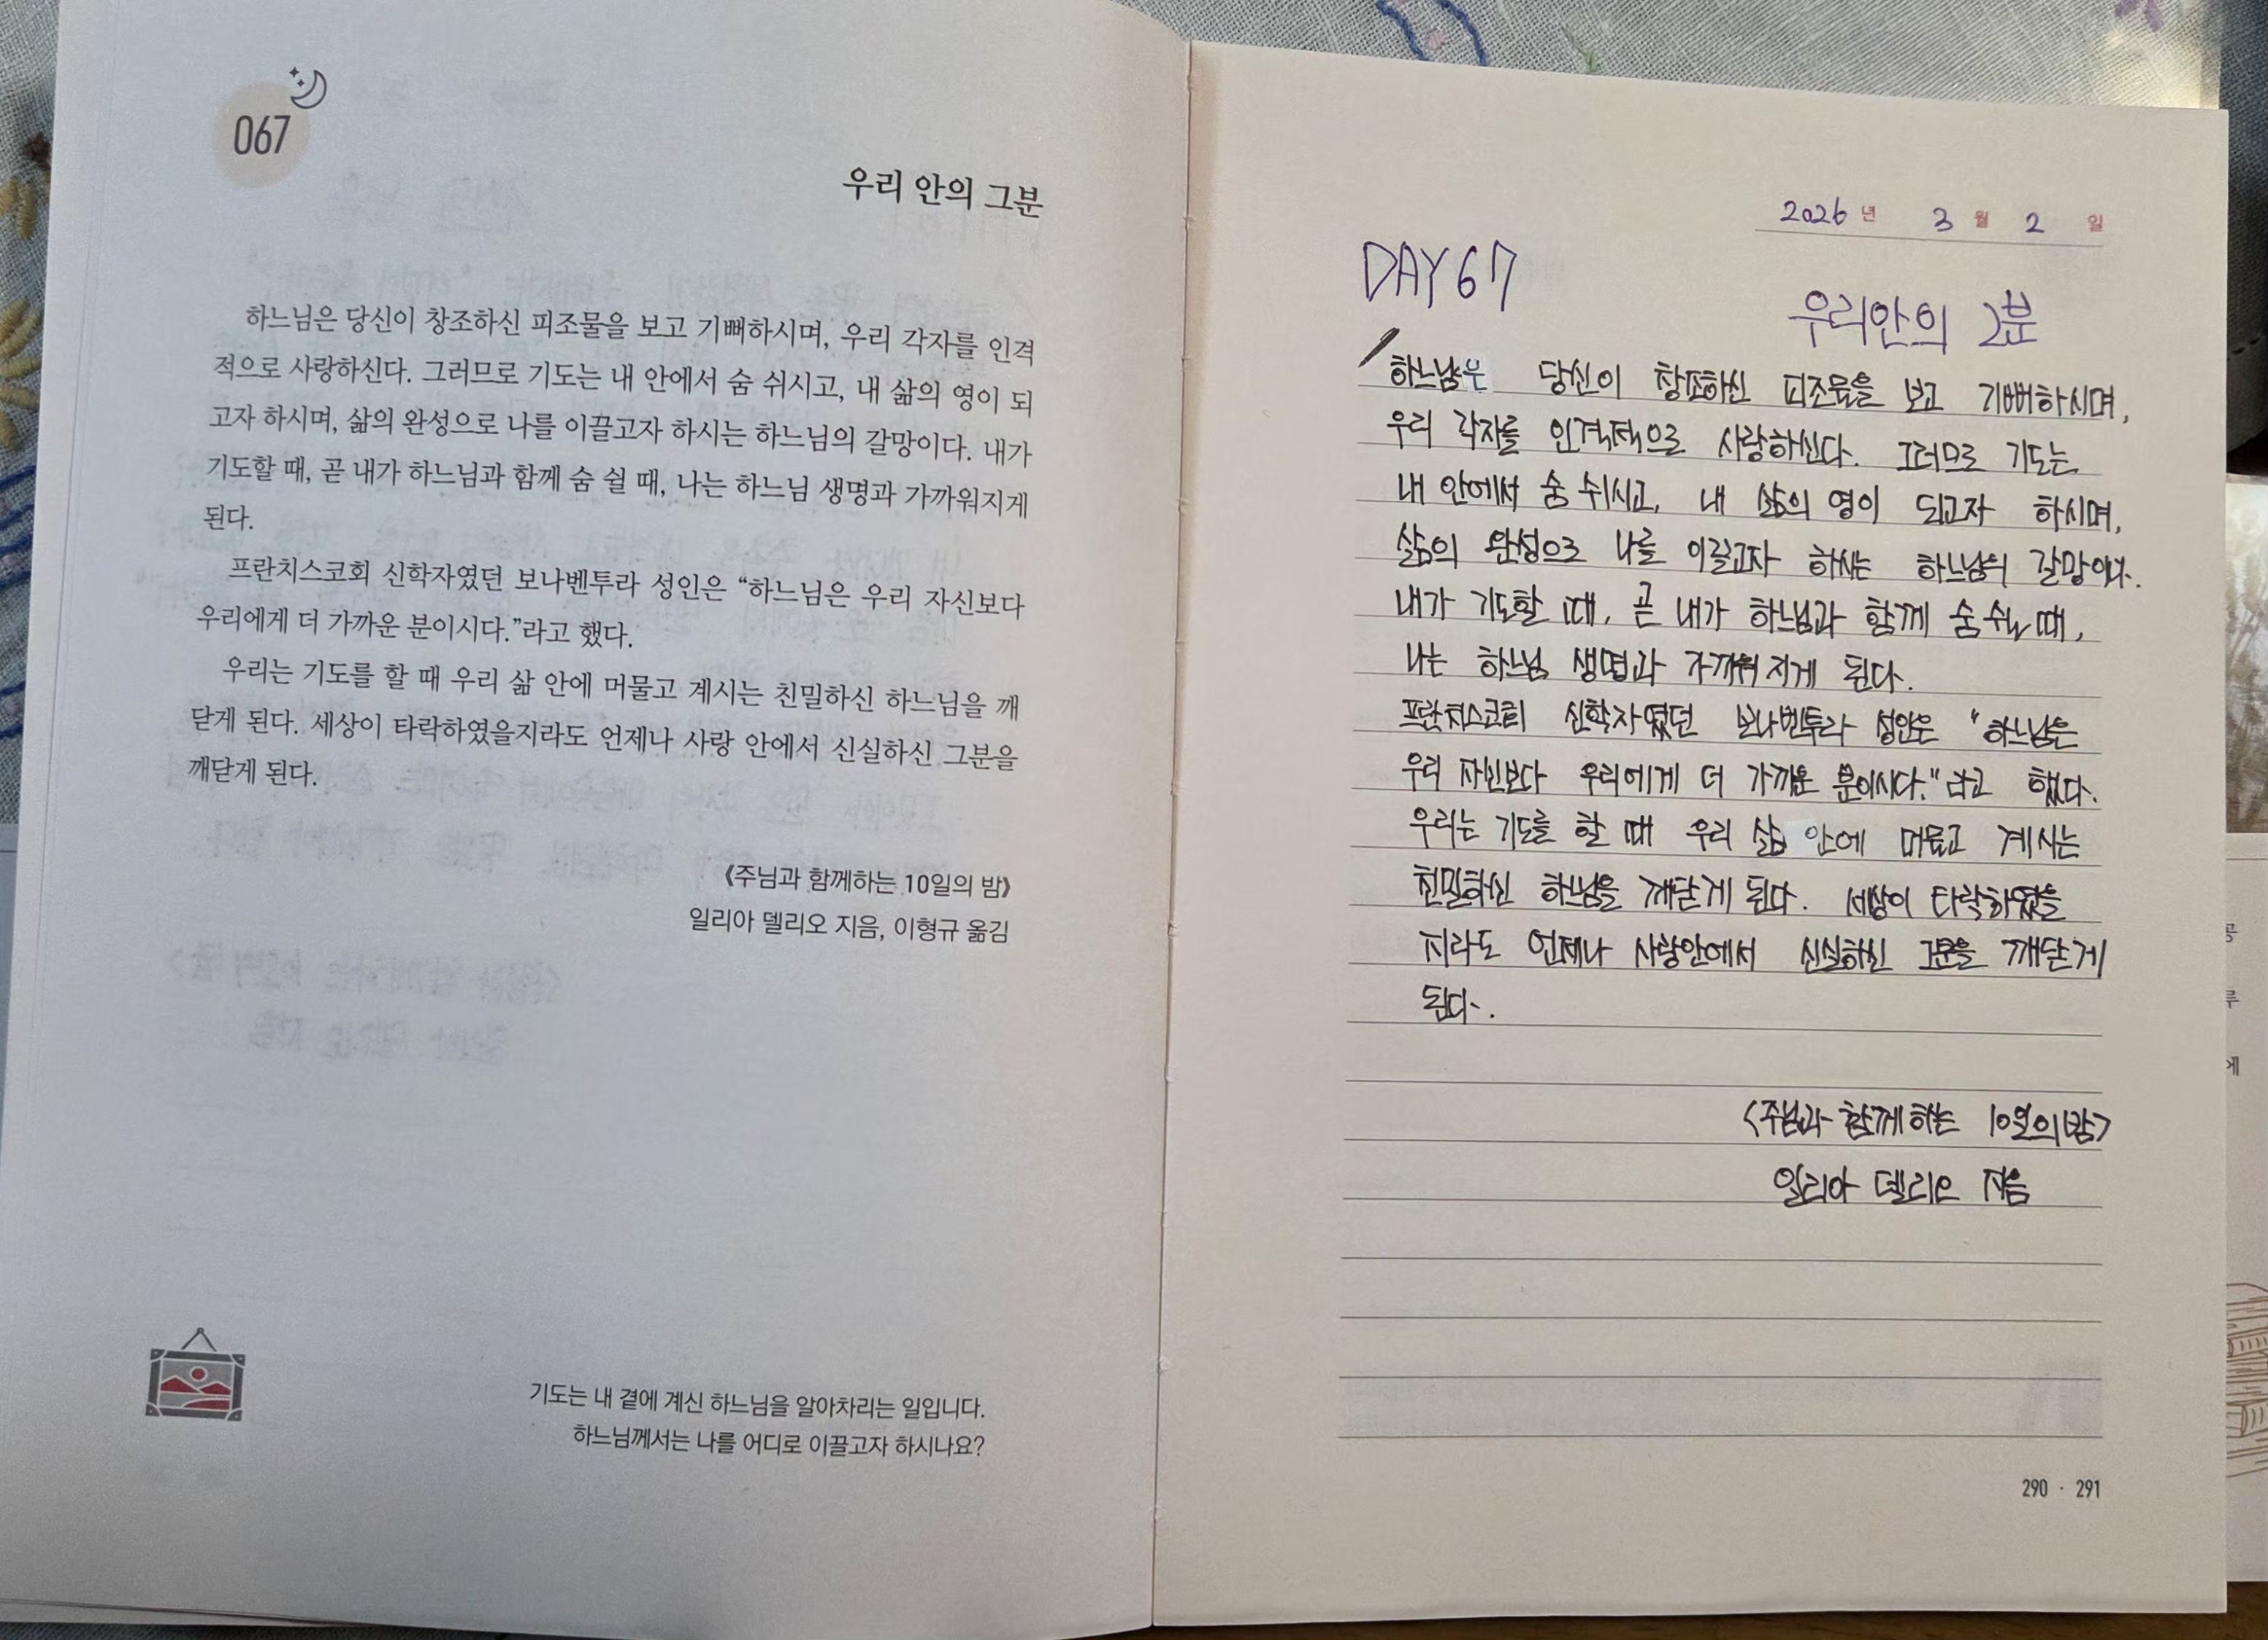 067
우리 안의 그분
하느님은 당신이 창조하신 피조물을 보고 기뻐하시며, 우리 각자를 인격
적으로 사랑하신다. 그러므로 기도는 내 안에서 숨 쉬시고, 내 삶의 영이 되
고자 하시며, 삶의 완성으로 나를 이끌고자 하시는 하느님의 갈망이다. 내가
기도할 때, 곧 내가 하느님과 함께 숨 쉴 때, 나는 하느님 생명과 가까워지게
된다.
프란치스코회 신학자였던 보나벤투라 성인은 “하느님은 우리 자신보다
우리에게 더 가까운 분이시다.”라고 했다.
우리는 기도를 할 때 우리 삶 안에 머물고 계시는 친밀하신 하느님을 깨
닫게 된다. 세상이 타락하였을지라도 언제나 사랑 안에서 신실하신 그분을
깨닫게 된다.
《주님과 함께하는 10일의 밤》
일리아 델리오 지음, 이형규 옮김
기도는 내 곁에 계신 하느님을 알아차리는 일입니다.
하느님께서는 나를 어디로 이끌고자 하시나요?
2026 년 3 월 2 일
DAY 67
우리안의 그분
하느님은 당신이 창조하신 피조물을 보고 기뻐하시며,
우리 각자를 인격적으로 사랑하신다. 그러므로 기도는
내 안에서 숨 쉬시고, 내 삶의 영이 되고자 하시며,
삶의 완성으로 나를 이끌고자 하시는 하느님의 갈망이다.
내가 기도할 때, 곧 내가 하느님과 함께 숨 쉴 때,
나는 하느님 생명과 가까워지게 된다.
프란치스코회 신학자였던 보나벤투라 성인은 "하느님은
우리 자신보다 우리에게 더 가까운 분이시다."라고 했다.
우리는 기도를 할 때 우리 삶 안에 머물고 계시는
친밀하신 하느님을 깨닫게 된다. 세상이 타락하였을
지라도 언제나 사랑안에서 신실하신 그분을 깨닫게
된다.
<주님과 함께하는 10일의 밤>
일리아 델리오 지음
290 · 291
공
루
에